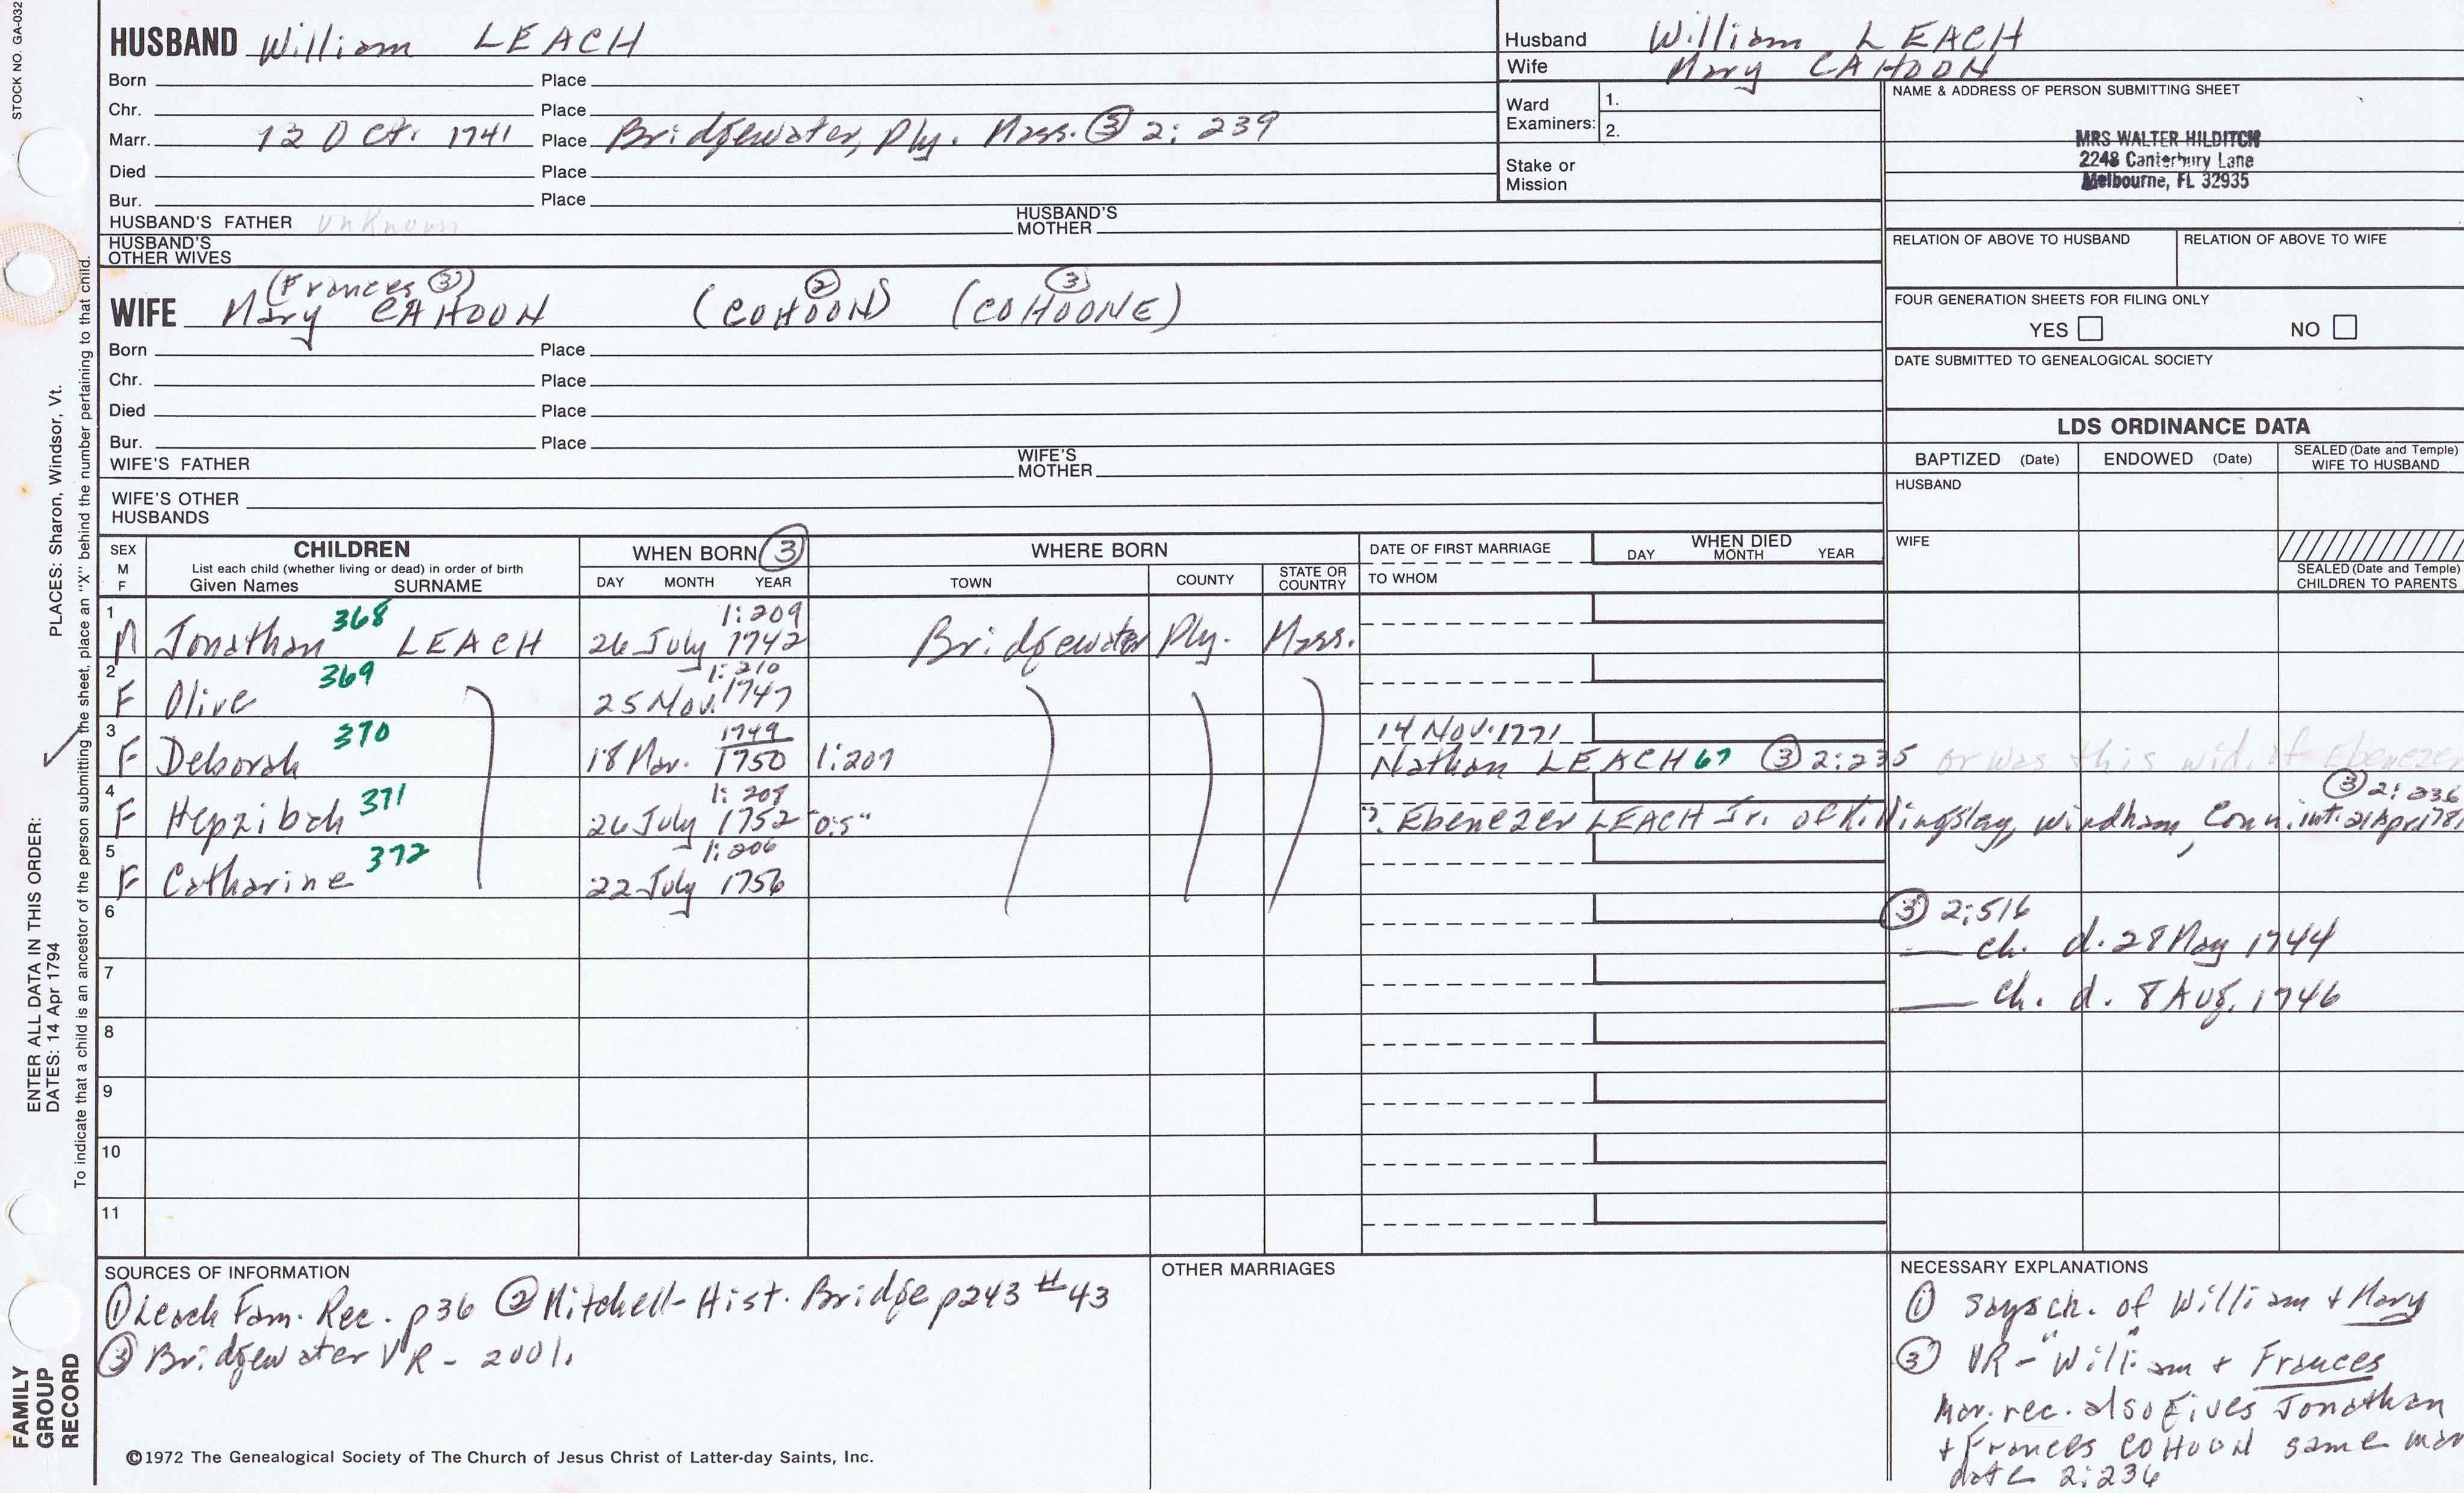 STOCK NO. GA-032
HUSBAND William LEACH
Born Place
Chr. Place
Marr. 12 Oct. 1741 Place Bridgewater, Ply. Mass. ③ 2: 239
Died Place
Bur. Place
HUSBAND'S FATHER unknown HUSBAND'S MOTHER
HUSBAND'S OTHER WIVES
Husband William LEACH
Wife Mary CAHOON
Ward Examiners: 1.
2.
Stake or Mission
NAME & ADDRESS OF PERSON SUBMITTING SHEET
MRS WALTER HILDITCH
2248 Canterbury Lane
Melbourne, FL 32935
RELATION OF ABOVE TO HUSBAND RELATION OF ABOVE TO WIFE
FOUR GENERATION SHEETS FOR FILING ONLY
YES NO
DATE SUBMITTED TO GENEALOGICAL SOCIETY
(Frances ③) ② ③
WIFE Mary CAHOON (COHOON) (COHOONE)
Born Place
Chr. Place
Died Place
Bur. Place
WIFE'S FATHER WIFE'S MOTHER
WIFE'S OTHER HUSBANDS
LDS ORDINANCE DATA
BAPTIZED (Date) ENDOWED (Date) SEALED (Date and Temple) WIFE TO HUSBAND
HUSBAND
WIFE
SEALED (Date and Temple) CHILDREN TO PARENTS
SEX M F
CHILDREN
List each child (whether living or dead) in order of birth
Given Names SURNAME
WHEN BORN ③
DAY MONTH YEAR
WHERE BORN
TOWN COUNTY STATE OR COUNTRY
DATE OF FIRST MARRIAGE
TO WHOM
WHEN DIED
DAY MONTH YEAR
1 368 1:209
M Jonathan LEACH 26 July 1742 Bridgewater Ply. Mass.
2 369 1:210
F Olive 25 Nov. 1747
3 370 1749 14 Nov. 1771
F Deborah 18 Mar. 1750 1:207 Nathan LEACH 67 ③ 2:235 or was this wid. of Ebenezer
4 371 1: 208 ③ 2: 236
F Hepzibah 26 July 1752 "O.S" ?. Ebenezer LEACH Jr. of Killingslay, Windham, Conn. int. 21 Apr 1781
5 372 1:206
F Catharine 22 July 1756
6
③ 2:516
ch. d. 28 May 1744
7
ch. d. 8 Aug. 1746
8
9
10
11
SOURCES OF INFORMATION
① Leach Fam. Rec. p36 ② Mitchell-Hist. Bridge p243 #43
③ Bridgewater VR - 2001.
OTHER MARRIAGES
NECESSARY EXPLANATIONS
① says ch. of William + Mary
③ VR - "William" + Frances
Mar. rec. also gives Jonathan
+ Frances COHOON same mar
date 2:236
©1972 The Genealogical Society of The Church of Jesus Christ of Latter-day Saints, Inc.
FAMILY GROUP RECORD
ENTER ALL DATA IN THIS ORDER:
DATES: 14 Apr 1794
PLACES: Sharon, Windsor, Vt.
To indicate that a child is an ancestor of the person submitting the sheet, place an "X" behind the number pertaining to that child.